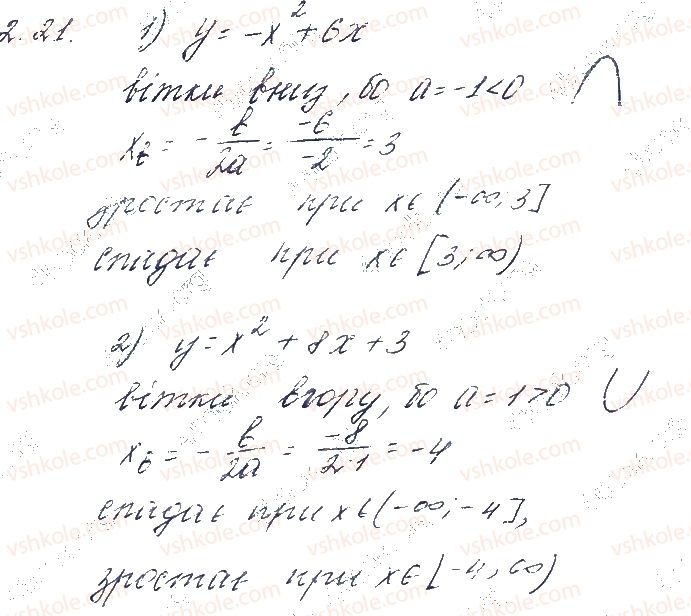 2.21. 1) y = -x² + 6x
вітки вниз, бо a = -1 < 0
xв = - в/2a = -6/-2 = 3
зростає при x ∈ (-∞; 3]
спадає при x ∈ [3; ∞)
2) y = x² + 8x + 3
вітки вгору, бо a = 1 > 0
xв = - в/2a = -8/2·1 = -4
спадає при x ∈ (-∞; -4],
зростає при x ∈ [-4; ∞)
vshkole.com